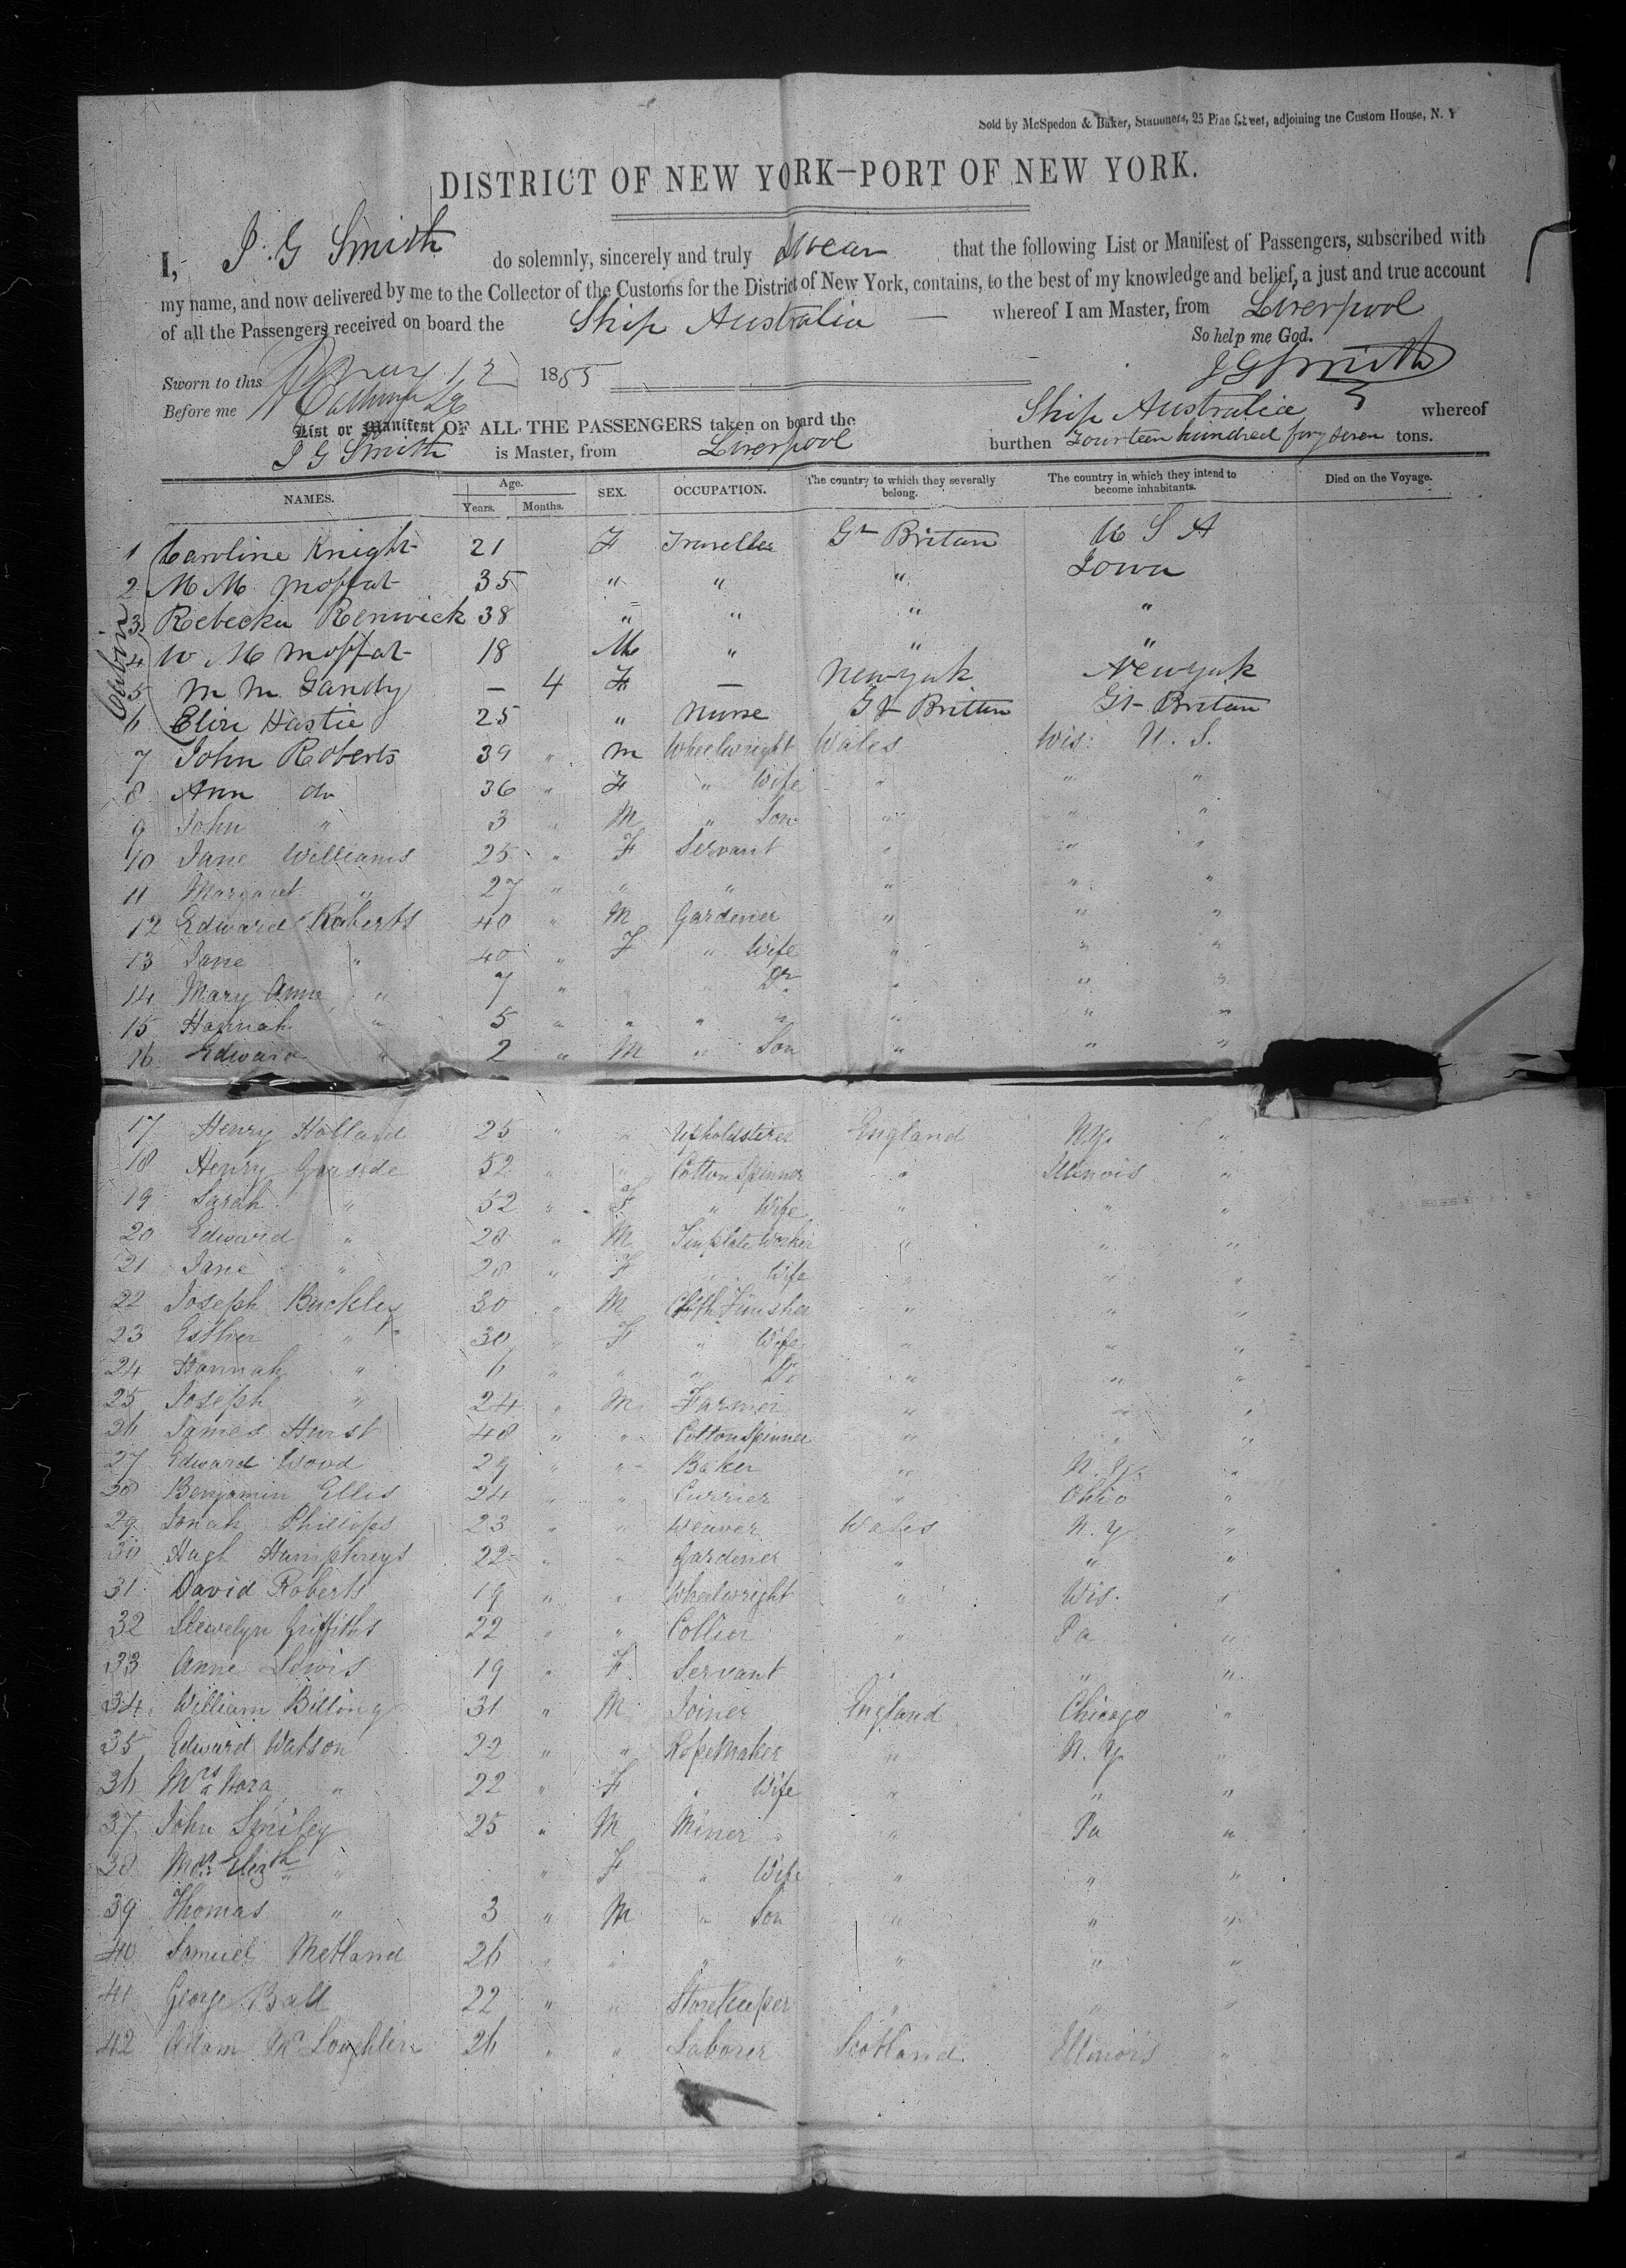 Sold by McSpedon & Baker, Stationers, 25 Pine Street, adjoining the Custom House, N. Y
DISTRICT OF NEW YORK—PORT OF NEW YORK.
I, J. G Smith do solemnly, sincerely and truly Swear that the following List or Manifest of Passengers, subscribed with
my name, and now delivered by me to the Collector of the Customs for the District of New York, contains, to the best of my knowledge and belief, a just and true account
of all the Passengers received on board the Ship Australia — whereof I am Master, from Liverpool
So help me God.
Sworn to this May 12 1855 J G Smith
Before me
List or Manifest OF ALL THE PASSENGERS taken on board the Ship Australia whereof
J G Smith is Master, from Liverpool burthen Fourteen hundred forty seven tons.
NAMES. Age. Years. Months. SEX. OCCUPATION. The country to which they severally belong. The country in which they intend to become inhabitants. Died on the Voyage.
Cabin
1 Caroline Knight 21 F Traveller Gt Britain U S A
2 M M Moffat 35 " " " Iowa
3 Rebecka Renwick 38 " " " "
4 W M Moffat 18 M " " "
5 M M Gandy — 4 F — Newyork Newyork
6 Eliza Hastie 25 " Nurse Gt Britain Gt Britain
7 John Roberts 39 " M Wheelwright Wales Wis: U. S.
8 Ann do 36 " F " Wife " " "
9 John " 3 " M " Son " " "
10 Jane Williams 25 " F Servant " " "
11 Margaret " 27 " " " " " "
12 Edward Roberts 40 " M Gardener " " "
13 Jane " 40 " F " Wife " " "
14 Mary Ann " 7 " " " Dr " " "
15 Hannah " 5 " " " " " " "
16 Edward " 2 " M " Son " " "
17 Henry Holland 25 " " Upholsterer England N.Y. "
18 Henry Garside 52 " " Cotton Spinner " Illinois "
19 Sarah " 52 " F " Wife " " "
20 Edward " 28 " M Tinplate Worker " " "
21 Jane " 28 " F " Wife " " "
22 Joseph Buckley 30 " M Cloth Finisher " " "
23 Esther " 30 " F " Wife " " "
24 Hannah " 6 " " " Dr " " "
25 Joseph " 24 " M Farmer " " "
26 James Hurst 48 " " Cotton Spinner " " "
27 Edward Wood 29 " " Baker " N.Y. "
28 Benjamin Ellis 24 " " Currier " Ohio "
29 Jonah Phillips 23 " " Weaver Wales N.Y "
30 Hugh Humphreys 22 " " Gardener " " "
31 David Roberts 19 " " Wheelwright " Wis. "
32 Llewelyn Griffiths 22 " " Collier " Pa "
33 Anne Lewis 19 " F Servant " " "
34 William Billing 31 " M Joiner England Chicago "
35 Edward Watson 22 " " Ropemaker " N.Y. "
36 Mrs Nora " 22 " F " Wife " " "
37 John Smiley 25 " M Miner " Pa "
38 Mrs Elizth " " F " Wife " " "
39 Thomas " 3 " M " Son " " "
40 Samuel Metland 26 " " " " " "
41 George Ball 22 " " Storekeeper " " "
42 Adam McLoughlin 26 " " Laborer Scotland Illinois "